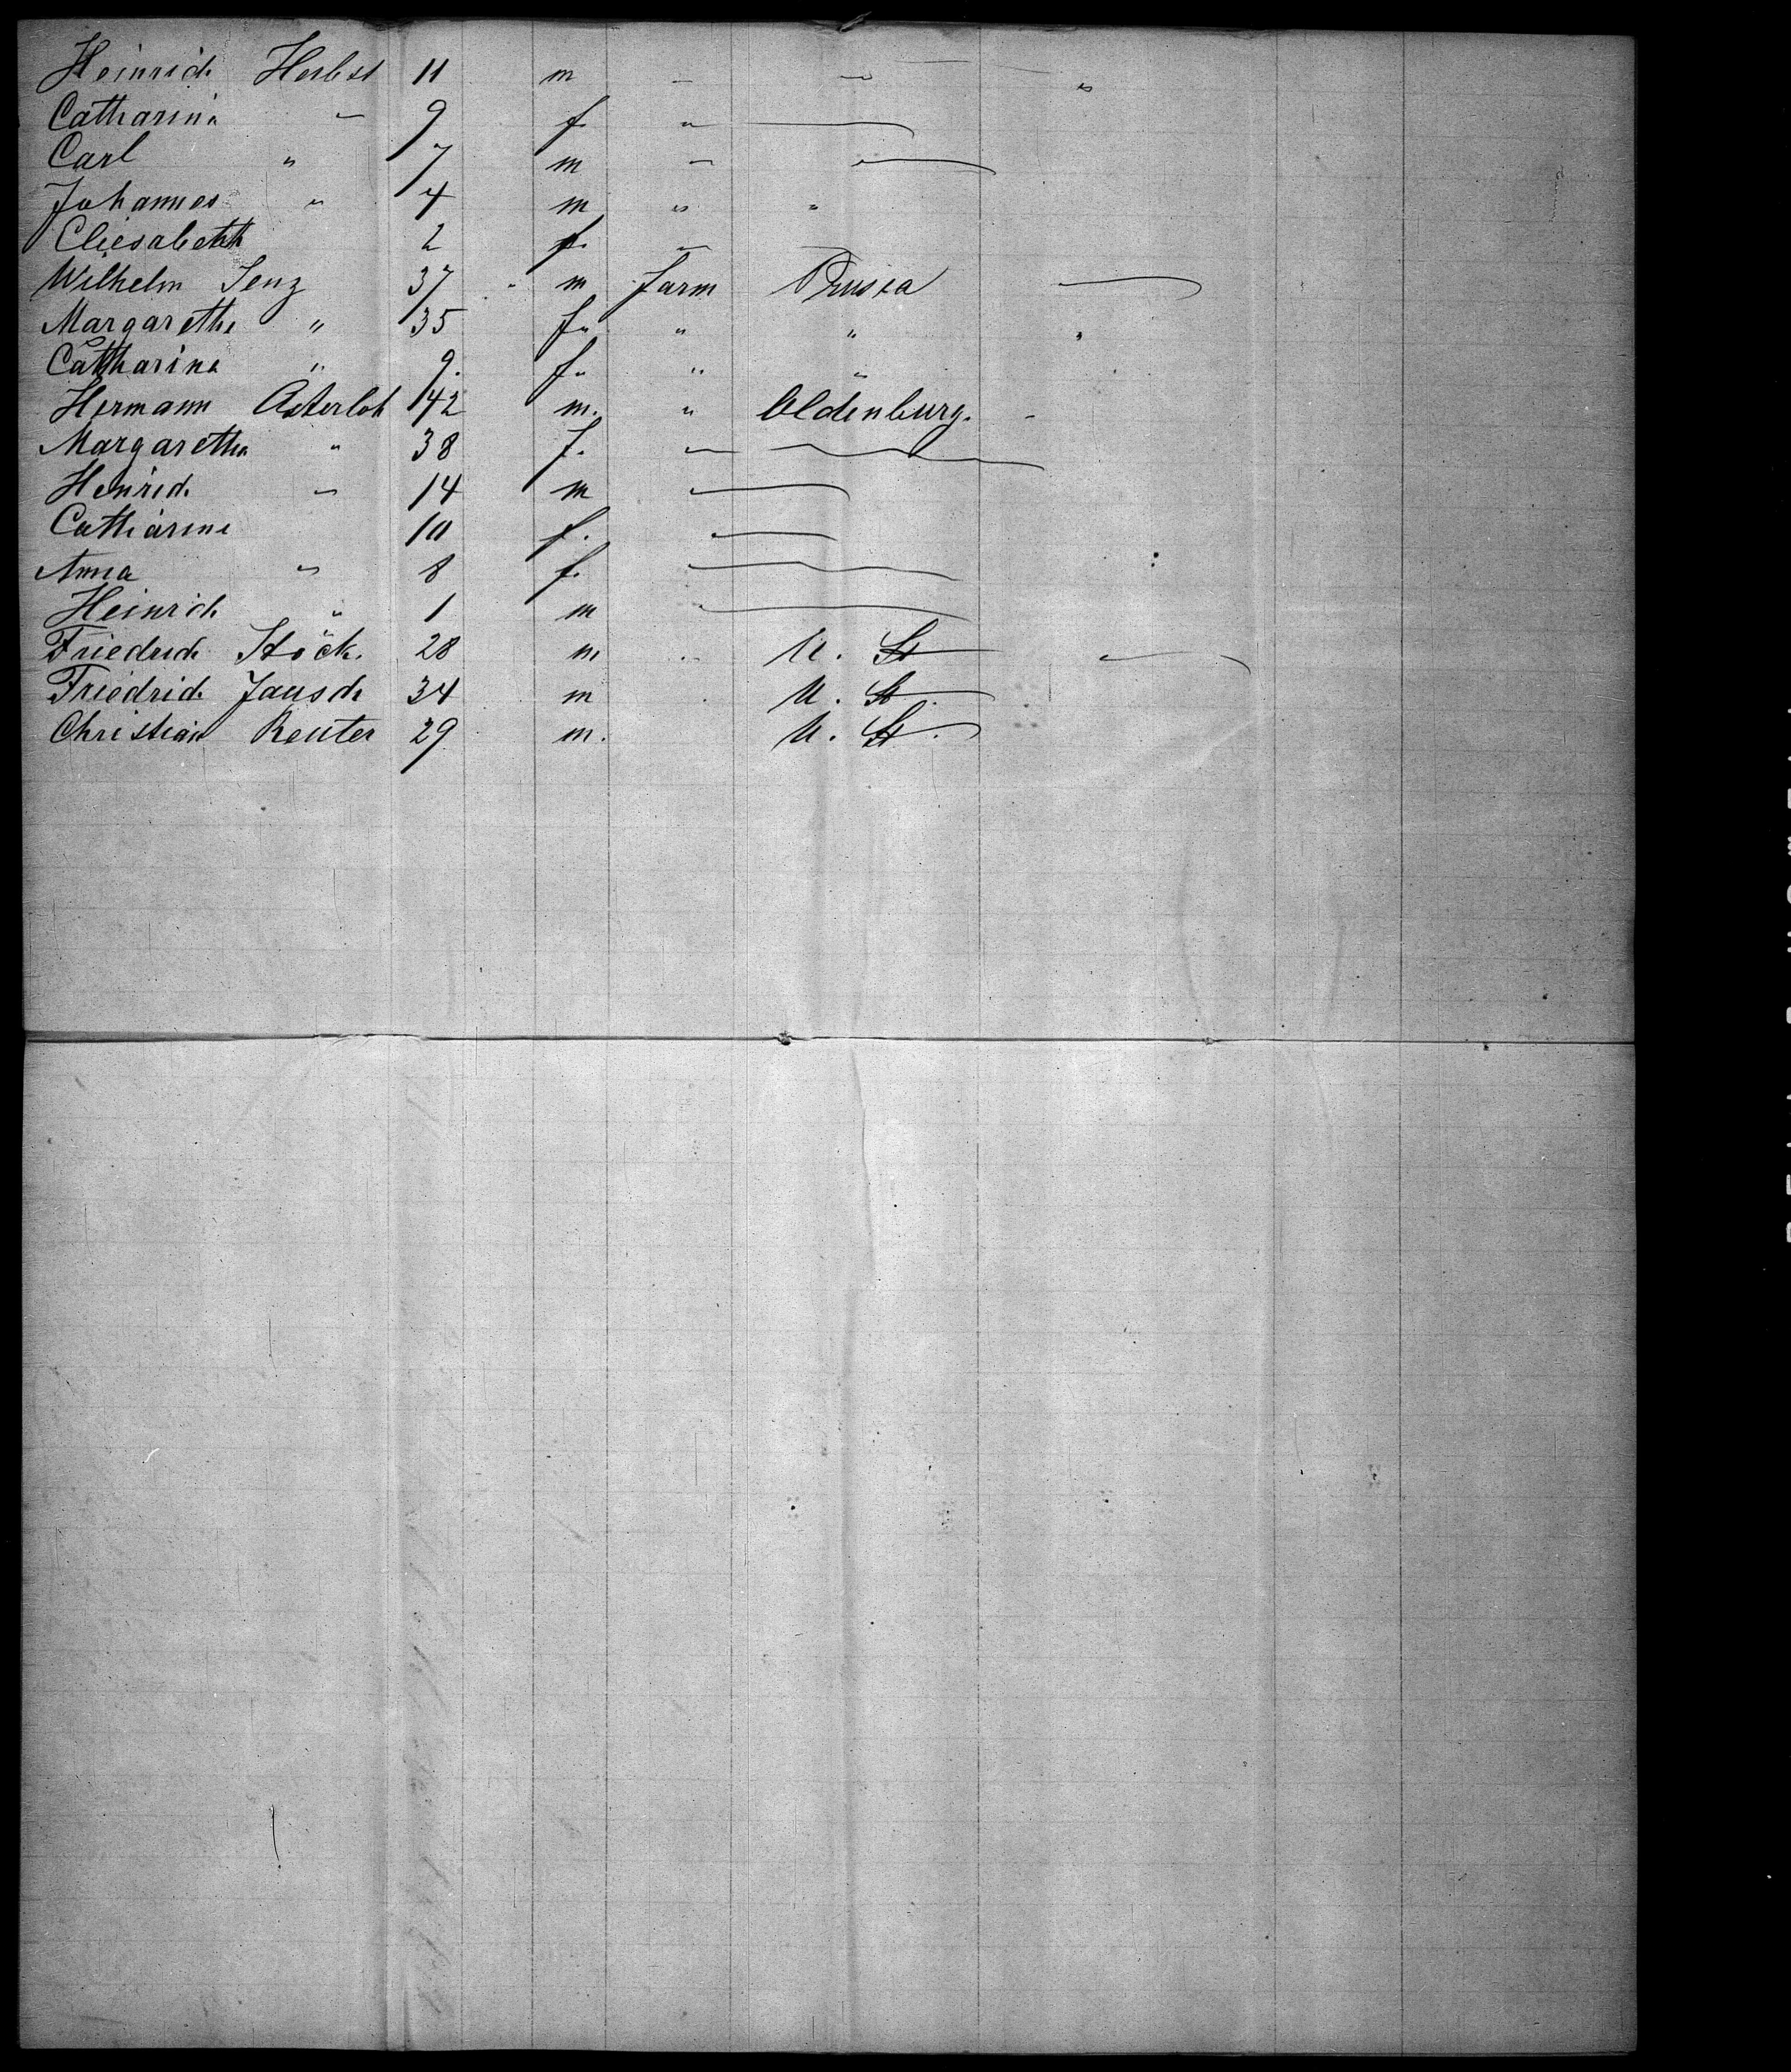 Heinrich Herbst 11 m " " "
Catharina " 9 f. "
Carl " 7 m " "
Johannes " 4 m " "
Eliesabehth 2 f. "
Wilhelm Lenz 37 " m Farm Prusia
Margarethe " 35 f " " " "
Catharina " 9. f " " "
Hermann Osterloh 42 m. " Oldenburg.
Margaretha " 38 f. "
Heinrich " 14 m "
Catharine 10 f. "
Anna " 8 f. "
Heinrich " 1 m "
Friedrich Stöck. 28 m " U. St
Friedrich Jausch 34 m U. St.
Christian Reuter 29 m. U. St.